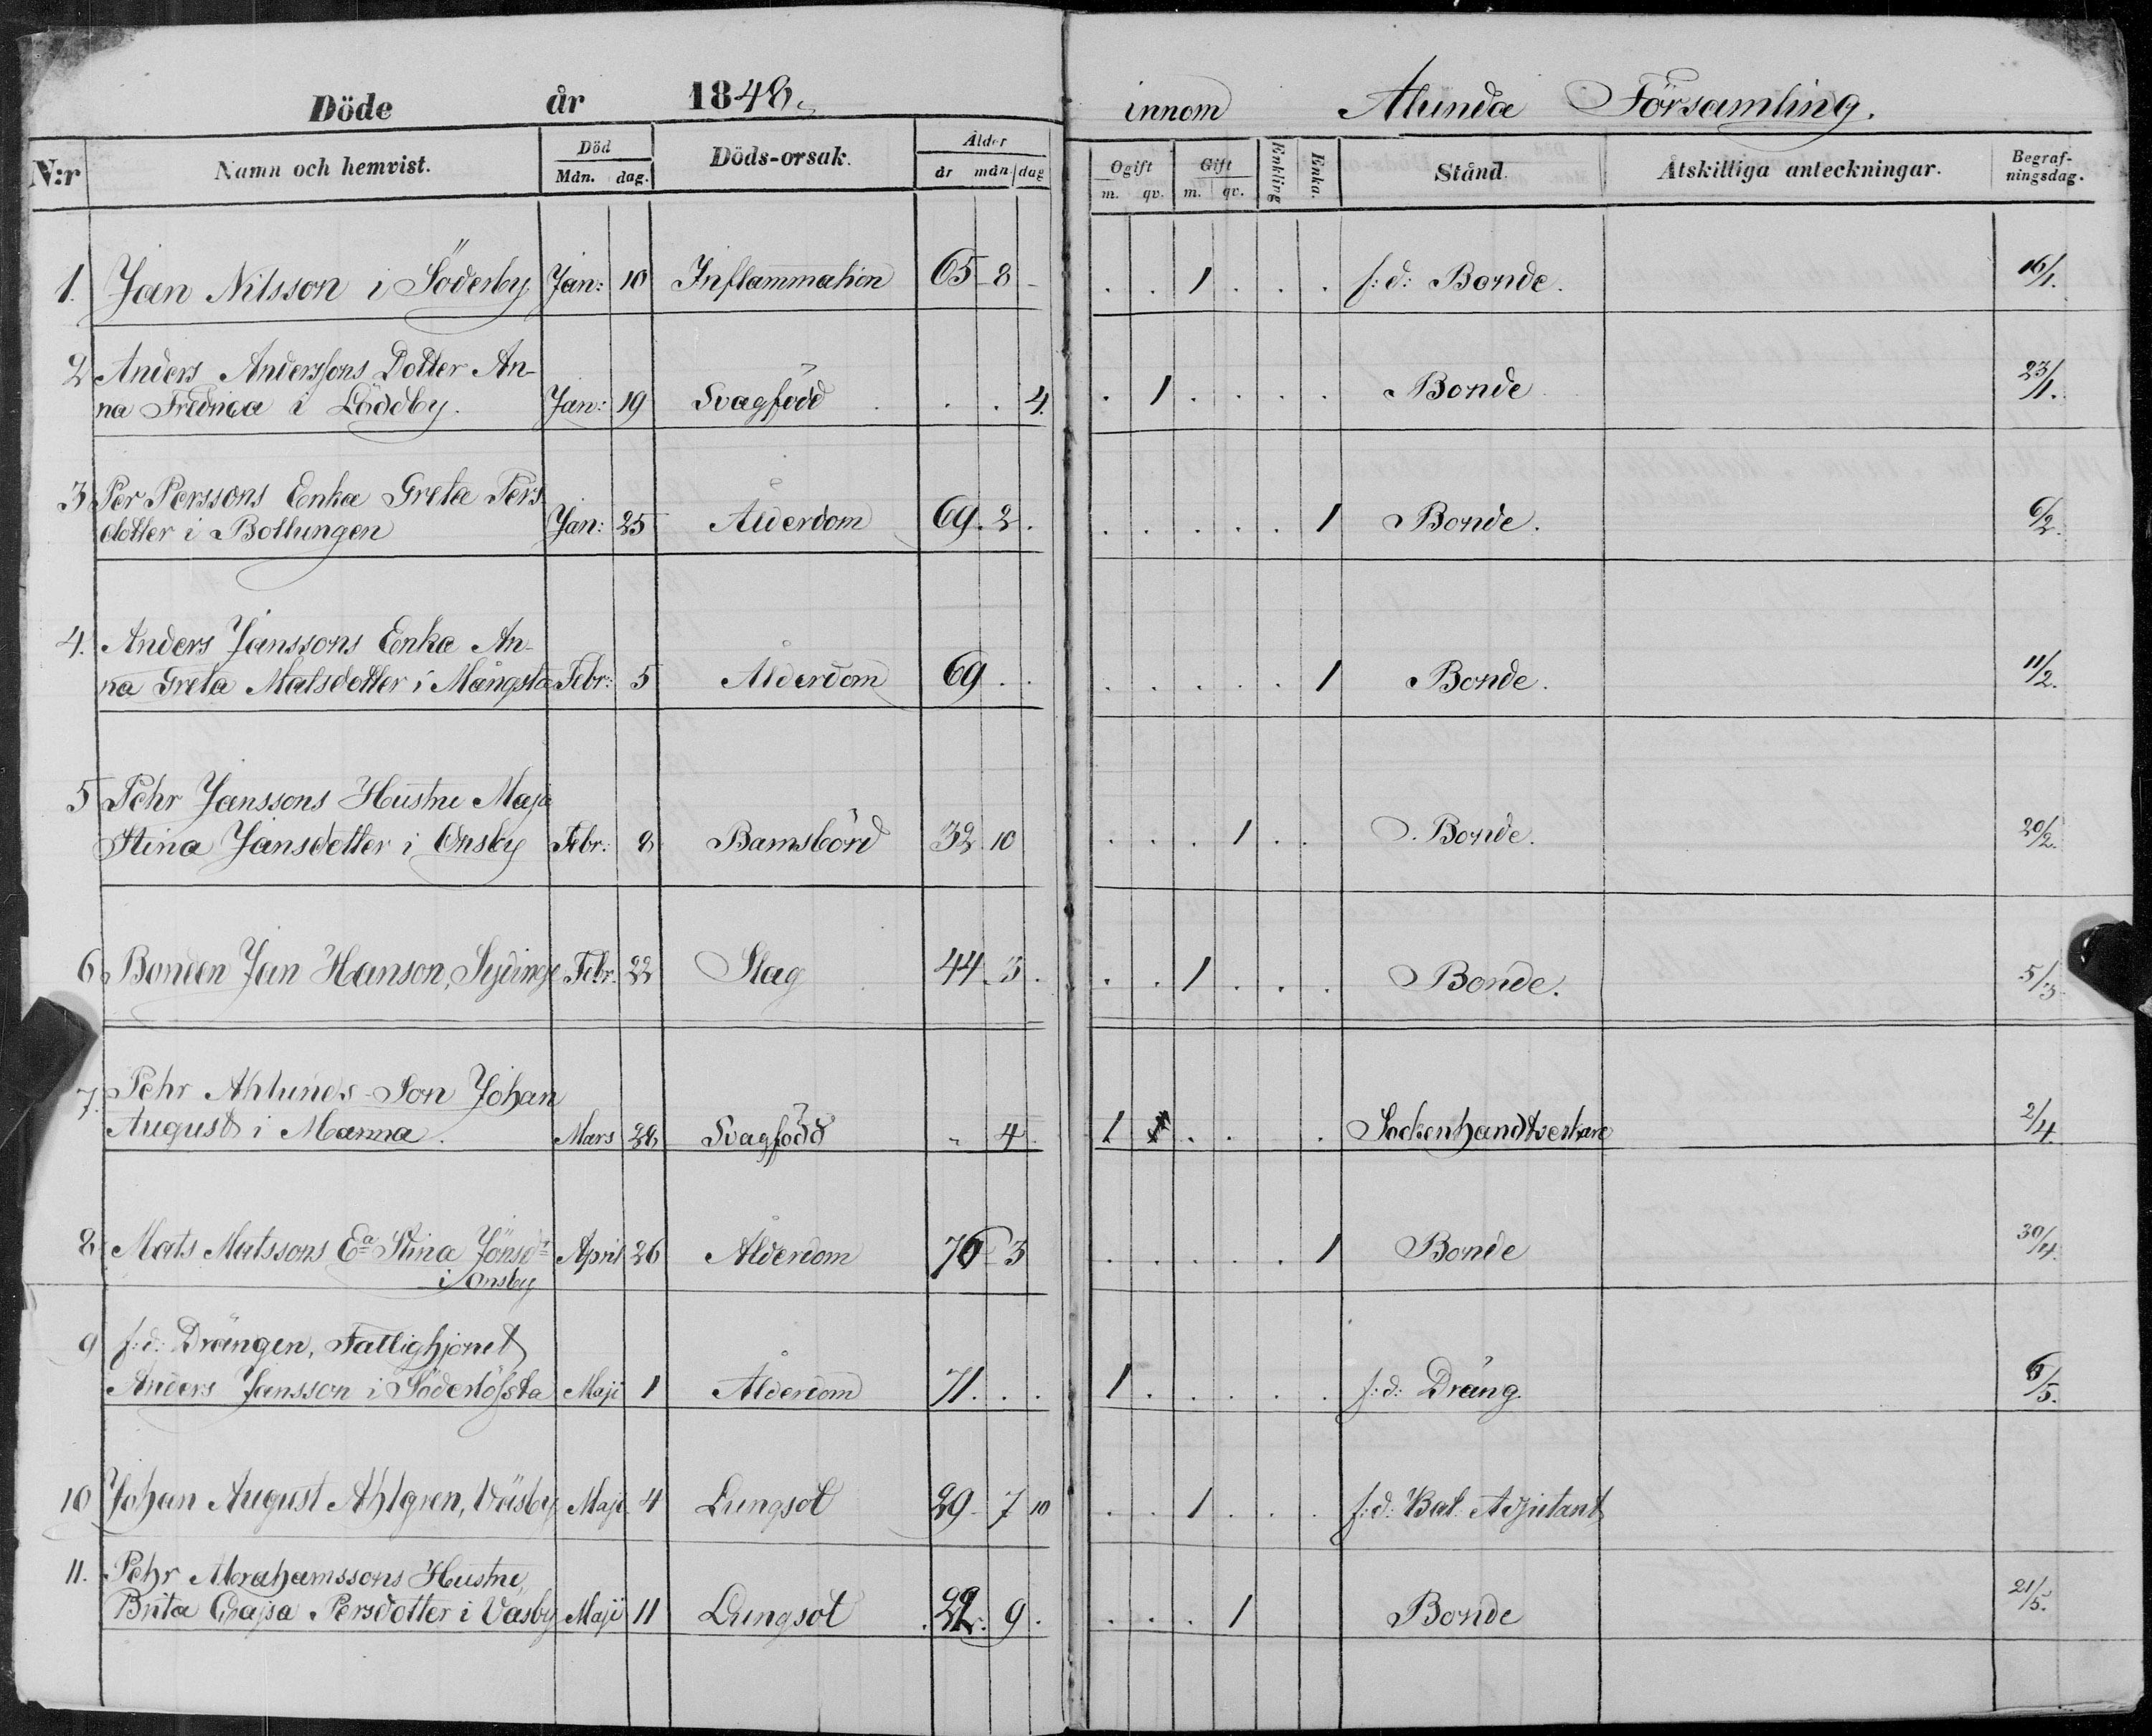 Döde år 1848. innom Alunda Församling.
N:r Namn och hemvist. Död Mån. dag. Döds-orsak. Ålder år mån. dag Ogift m. qv. Gift m. qv. Enkling Enka. Stånd. Åtskilliga anteckningar. Begraf-ningsdag.
1. Jan Nilsson i Söderby Jan: 10 Inflammation 65 8 1 f:d: Bonde. 16/1.
2 Anders Anderssons Dotter An-
na Fredrica i Löddby. Jan: 19 Svagfödd 4. 1 Bonde 23/1.
3 Per Perssons Enka Greta Pers
dotter i Bollungen Jan: 25 Ålderdom 69. 2. 1 Bonde. 6/2.
4. Anders Janssons Enka An-
na Greta Matsdotter i Mångsta Febr: 5 Ålderdom 69 1 Bonde. 11/2.
5 Pehr Janssons Hustru Maja
Stina Jansdotter i Onsby Febr: 8 Barnsbörd 32. 10 1 Bonde. 20/2.
6 Bonden Jan Hanson, Sydinge Febr. 22 Slag 44. 3. 1 Bonde. 5/3
7. Pehr Ahlunds Son Johan
August i Marma. Mars 28 Svagfödd 4 1 Sockenhandtverkare 2/4.
8 Mats Matssons Ea Stina Jönsdr
i Onsby April 26 Ålderdom 76 3 1 Bonde 30/4.
9 f:d: Drängen, Fattighjonet
Anders Jansson i Söderlöfsta Maji 1 Ålderdom 71. 1 f:d: Dräng /5.
10 Johan August Ahlgren, Väsby Maji 4 Lungsot 29 7 10 1 f:d: Bat. Adjutant
11. Pehr Abrahamssons Hustru,
Brita Cajsa Persdotter i Vasby Maji 11 Lungsot 9. 1 Bonde 21/5.